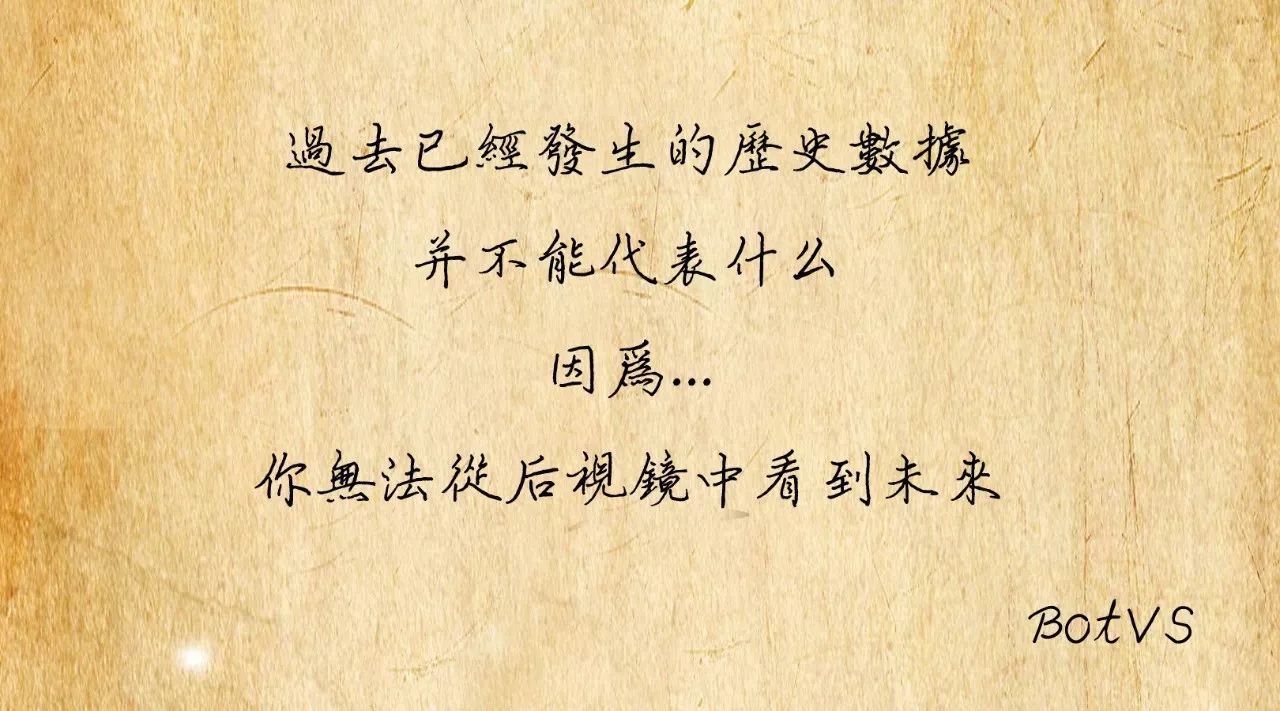 過去已經發生的歷史數據
并不能代表什么
因爲...
你無法從后視鏡中看到未來
BotVS